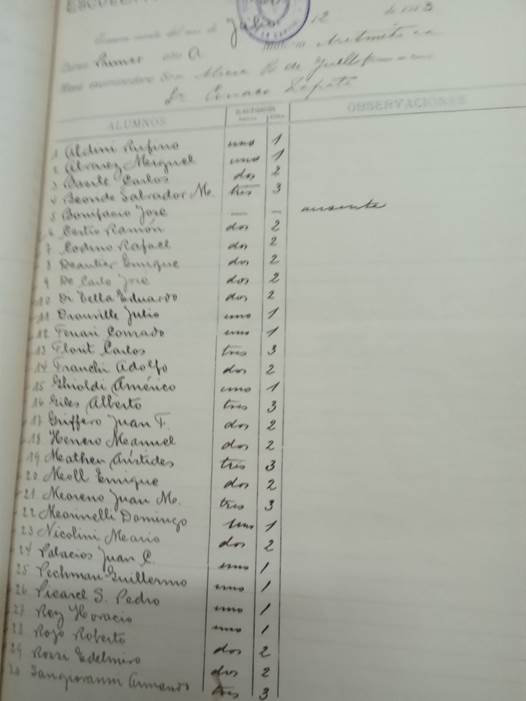 ESCUELA
Examen escrito del mes de Julio 12 de 1913
Curso Primer año A Materia Aritmética
Mesa examinadora Sra. de
Dr. Zapata
ALUMNOS OBSERVACIONES
1 Aldini Rufino uno 1
2 Alvarez Meiguel uno 1
3 Carlos dos 2
4 Beonde Salvador M. tres 3
5 Bonifacio José — — ausente
6 Ramón dos 2
7 Codino Rafael dos 2
8 Deautier Enrique dos 2
9 De Carlo José dos 2
10 Di Tella Eduardo dos 2
11 Drouville Julio uno 1
12 Ferrari Conrado uno 1
13 Florit Carlos tres 3
14 Franchi Adolfo dos 2
15 Ghioldi Américo uno 1
16 Giles Alberto tres 3
17 Griffero Juan F. dos 2
18 Manuel dos 2
19 Matheu Arístides tres 3
20 Moll Enrique dos 2
21 Moreno Juan M. tres 3
22 Domingo uno 1
23 Nicolini Mario dos 2
24 Palacios Juan C. uno 1
25 Pechman Guillermo uno 1
26 Picarel S. Pedro uno 1
27 Rey Horacio uno 1
28 Rojo Roberto dos 2
29 Rossi Edelmiro dos 2
30 Sangiovanni Armando tres 3